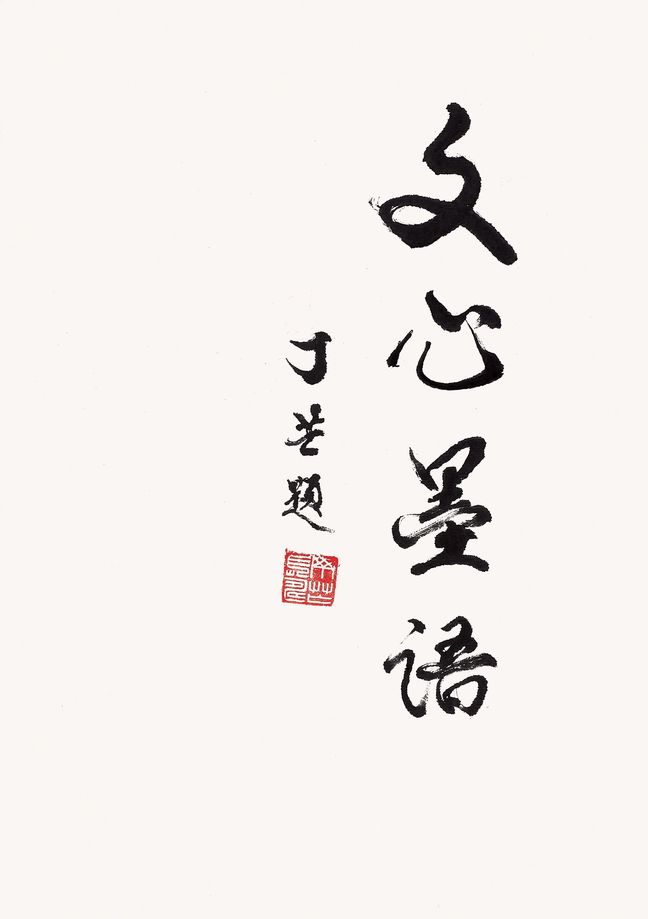 文心墨语
丁芒题